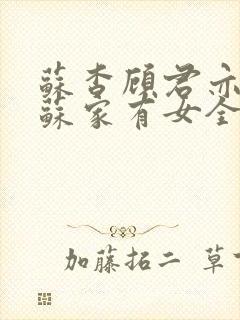 蘇杏顧君亦
蘇家有女全
加藤拓二 草